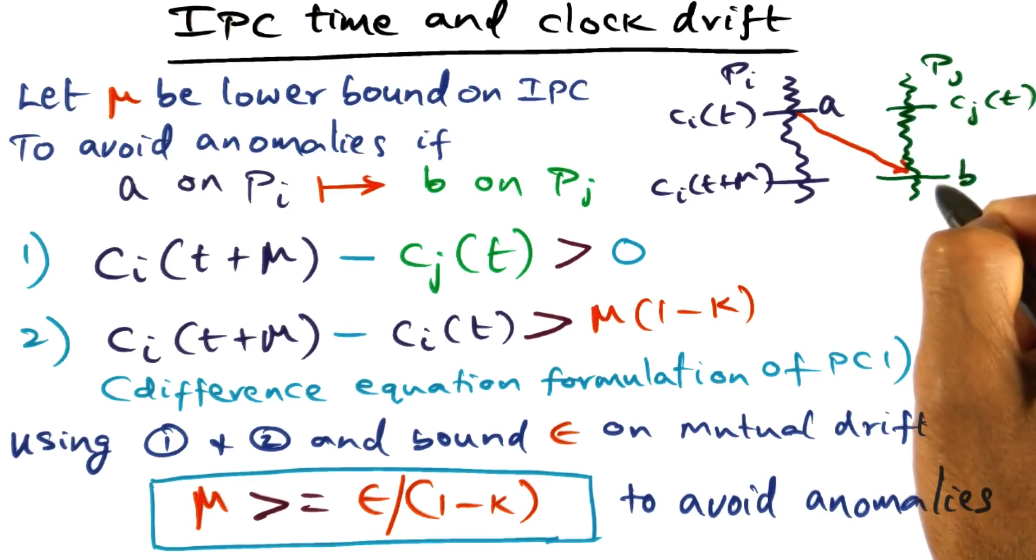 IPC time and clock drift
Let μ be lower bound on IPC
To avoid anomalies if
a on Pi ↦ b on Pj
1) Ci(t+μ) - Cj(t) > 0
2) Ci(t+μ) - Ci(t) > μ(1-K)
(difference equation formulation of PC1)
using ① + ② and bound ϵ on mutual drift
μ >= ϵ/(1-K) to avoid anomalies
Pi
Pj
Ci(t)
a
Cj(t)
Ci(t+μ)
b